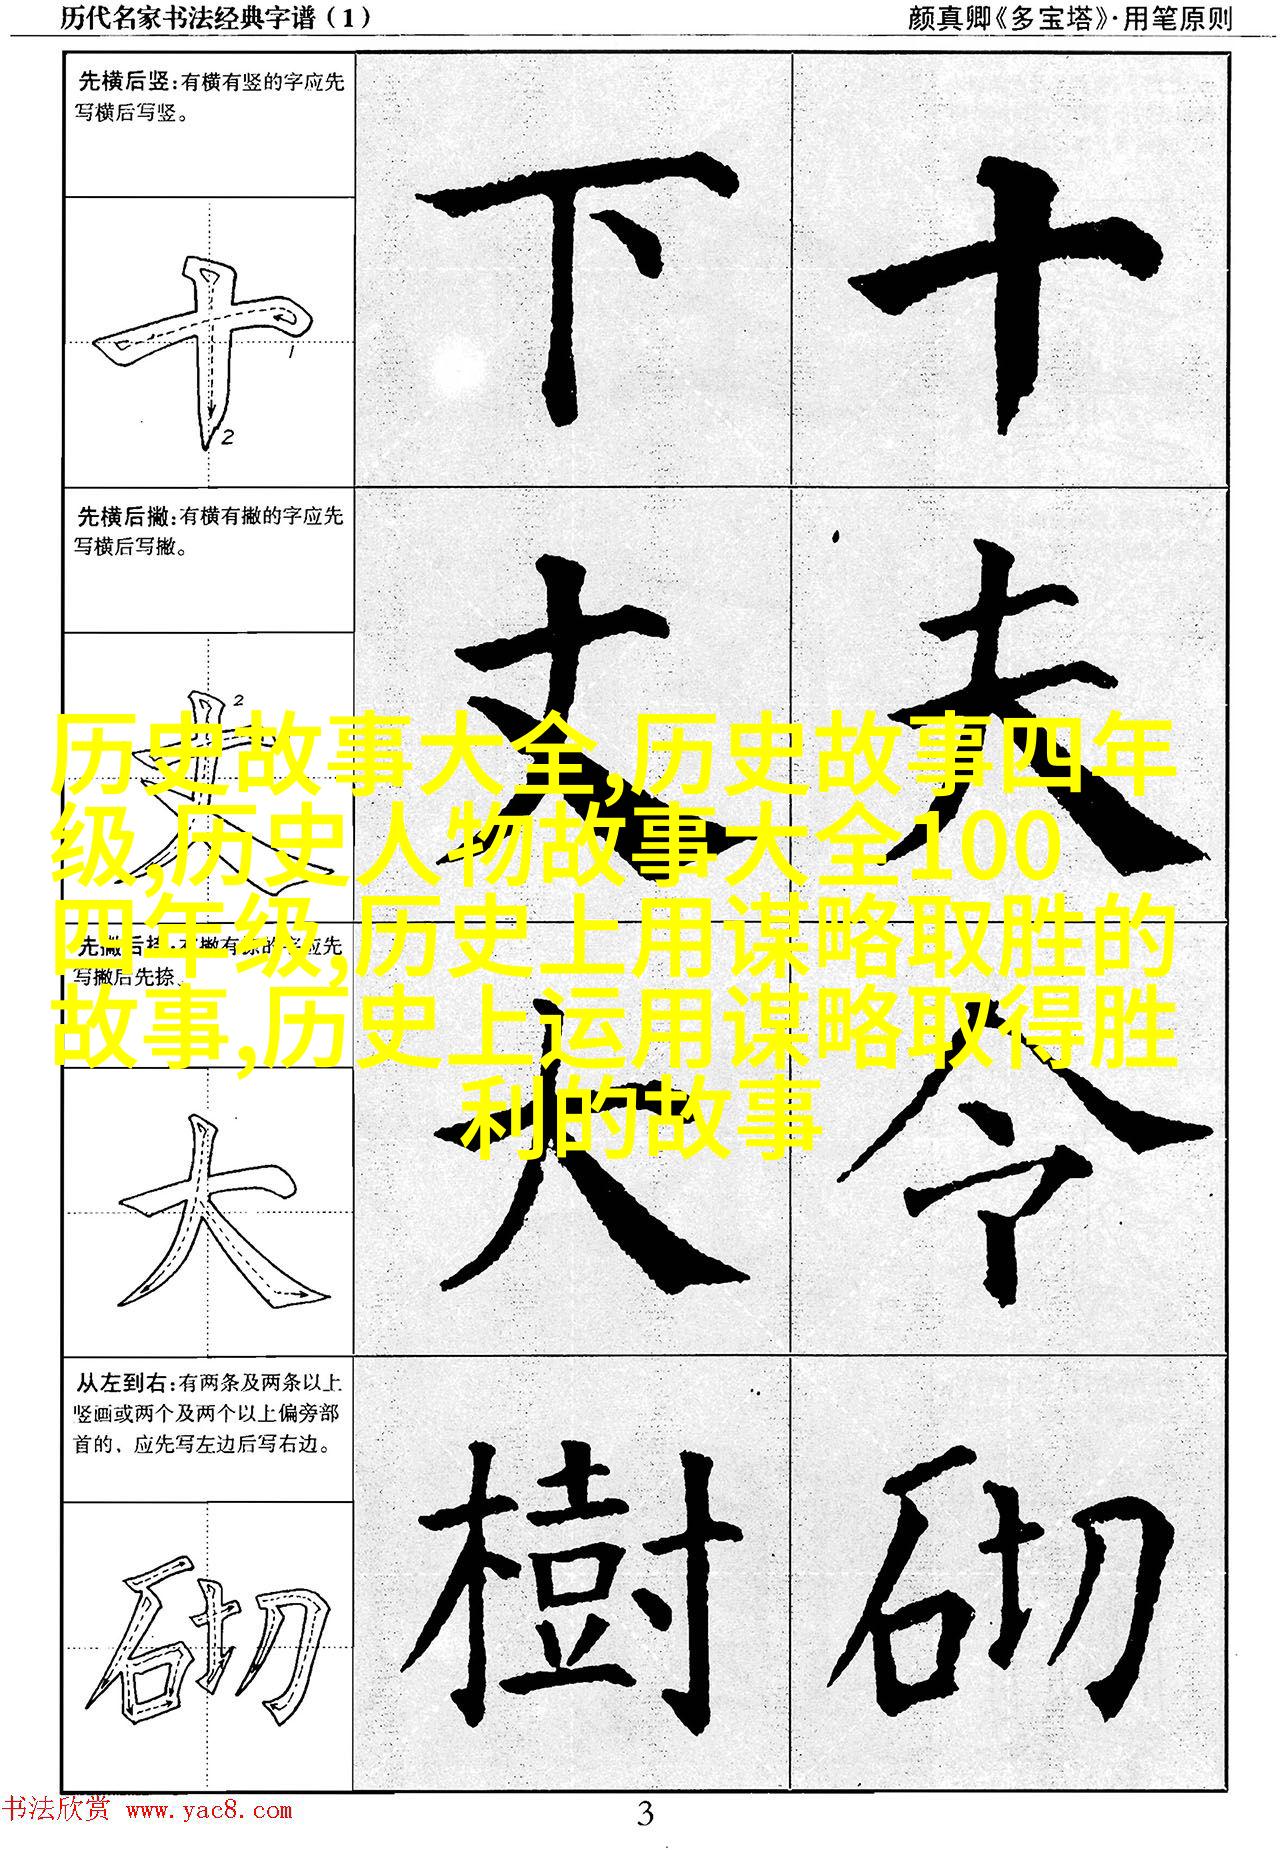 历代名家书法经典字谱（1）
颜真卿《多宝塔》·用笔原则
先横后竖：有横有竖的字应先
写横后写竖。
1
2
下
十
先横后撇：有横有撇的字应先
写横后写撇。
2
丈
夫
历史故事大全,历史故事四年
级,历史人物故事大全100
四年级,历史上用谋略取胜的
故事,历史上运用谋略取得胜
利的故事
写撇后先捺、
大
大
令
从左到右：有两条及两条以上
竖画或两个及两个以上偏旁部
首的，应先写左边后写右边。
砌
樹
砌
书法欣赏 www.yac8.com
3